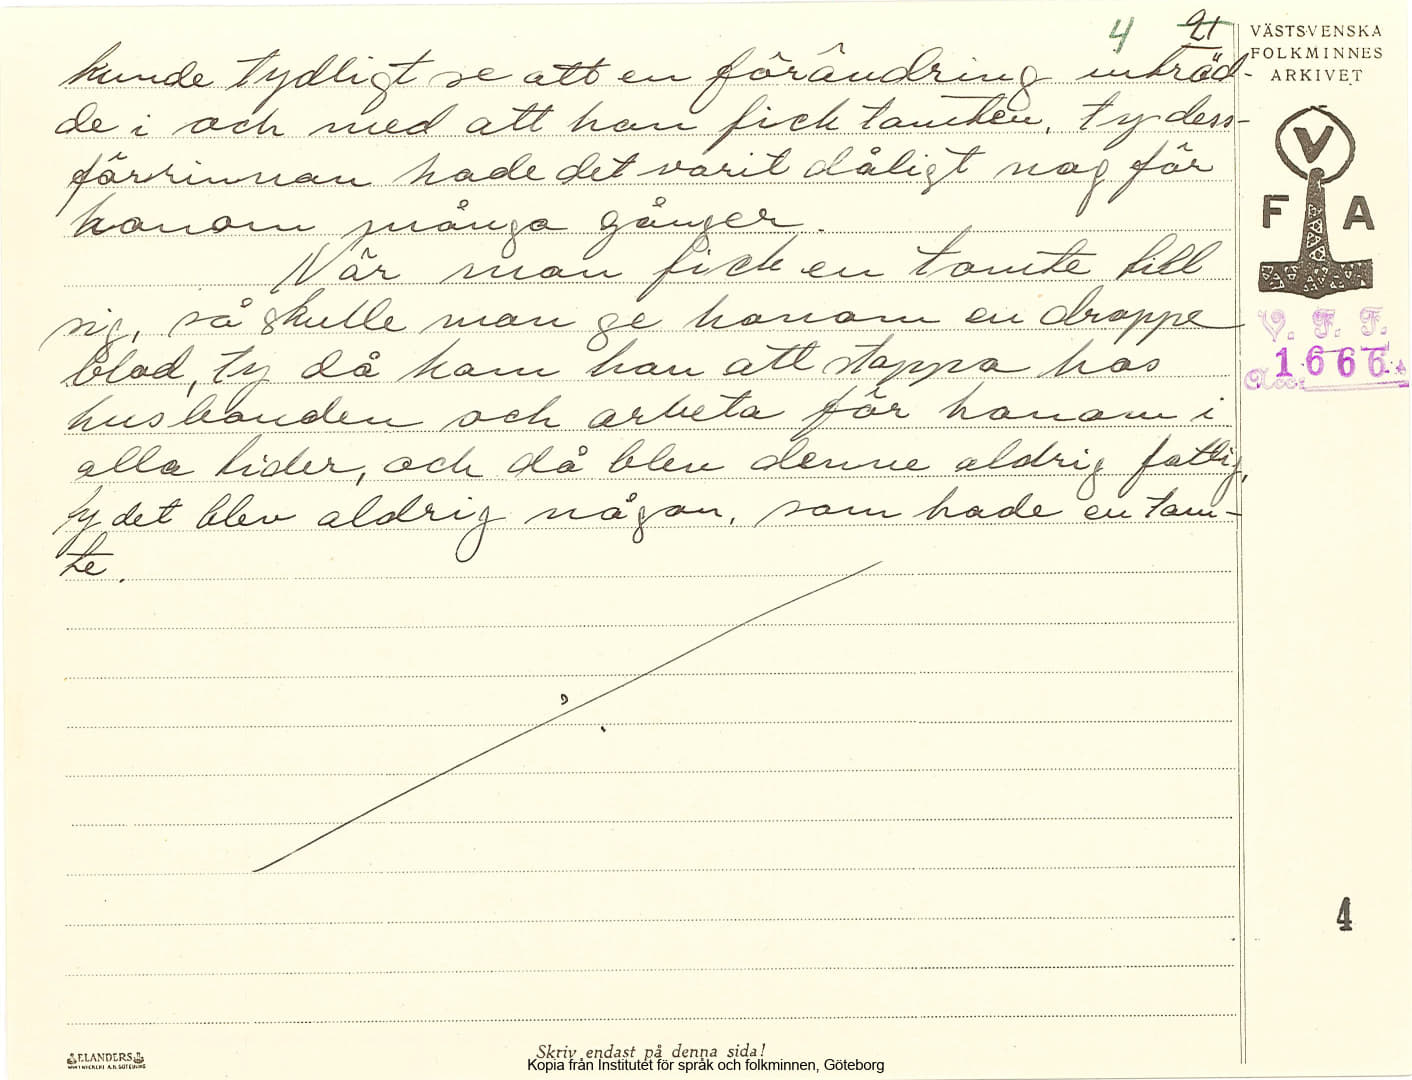 4 21
kunde tydligt se att en förändring inträd-
de i och med att han fick tomten, ty dess-
förrinnan hade det varit dåligt nog för
honom många gånger.
När man fick en tomte till
sig, så skulle man ge honom en droppe
blod, ty då kom han att stoppa hos
husbonden och arbeta för honom i
alla tider, och då blev denne aldrig fattig,
ty det blev aldrig någon, som hade en tom-
te.
VÄSTSVENSKA
FOLKMINNES
ARKIVET
V
F A
V. F. F.
Acc: 1666
4
ELANDERS
Skriv endast på denna sida!
Kopia från Institutet för språk och folkminnen, Göteborg